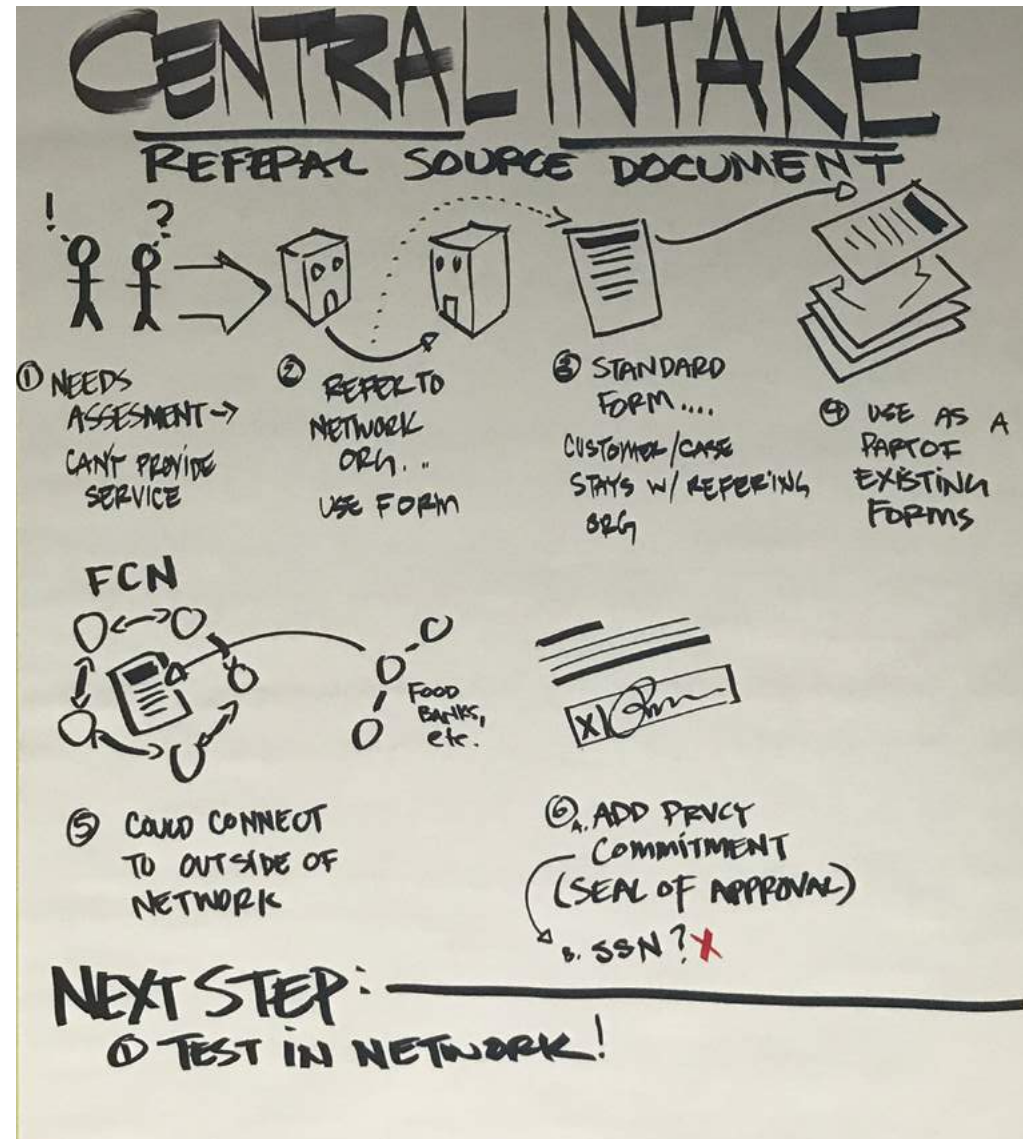 CENTRAL INTAKE
REFERRAL SOURCE DOCUMENT
! ?
① NEEDS
ASSESMENT →
CAN'T PROVIDE
SERVICE
② REFER TO
NETWORK
ORG...
USE FORM
③ STANDARD
FORM....
CUSTOMER/CASE
STAYS W/ REFERING
ORG
④ USE AS A
PART OF
EXISTING
FORMS
FCN
FOOD
BANKS,
etc.
X
⑤ COULD CONNECT
TO OUTSIDE OF
NETWORK
⑥ A. ADD PRVCY
COMMITMENT
(SEAL OF APPROVAL)
B. SSN? X
NEXT STEP:
① TEST IN NETWORK!